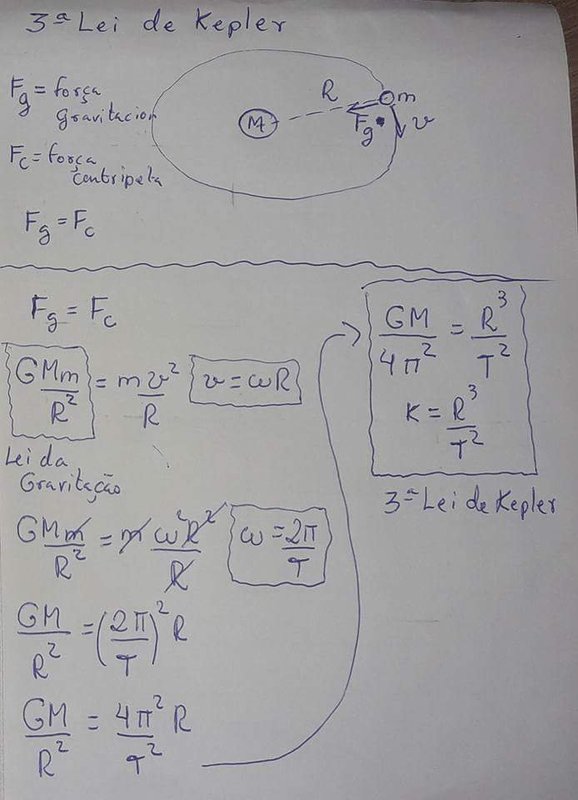 3ª Lei de Kepler
Fg = força
gravitacion
Fc = força
centripeta
Fg = Fc
M
R
m
Fg
v
Fg = Fc
GMm/R² = m v²/R
v = ωR
Lei da
Gravitação
GMm/R² = m ω²R²/R
ω = 2π/T
GM/R² = (2π/T)² R
GM/R² = 4π² R/T²
GM/4π² = R³/T²
K = R³/T²
3ª Lei de Kepler